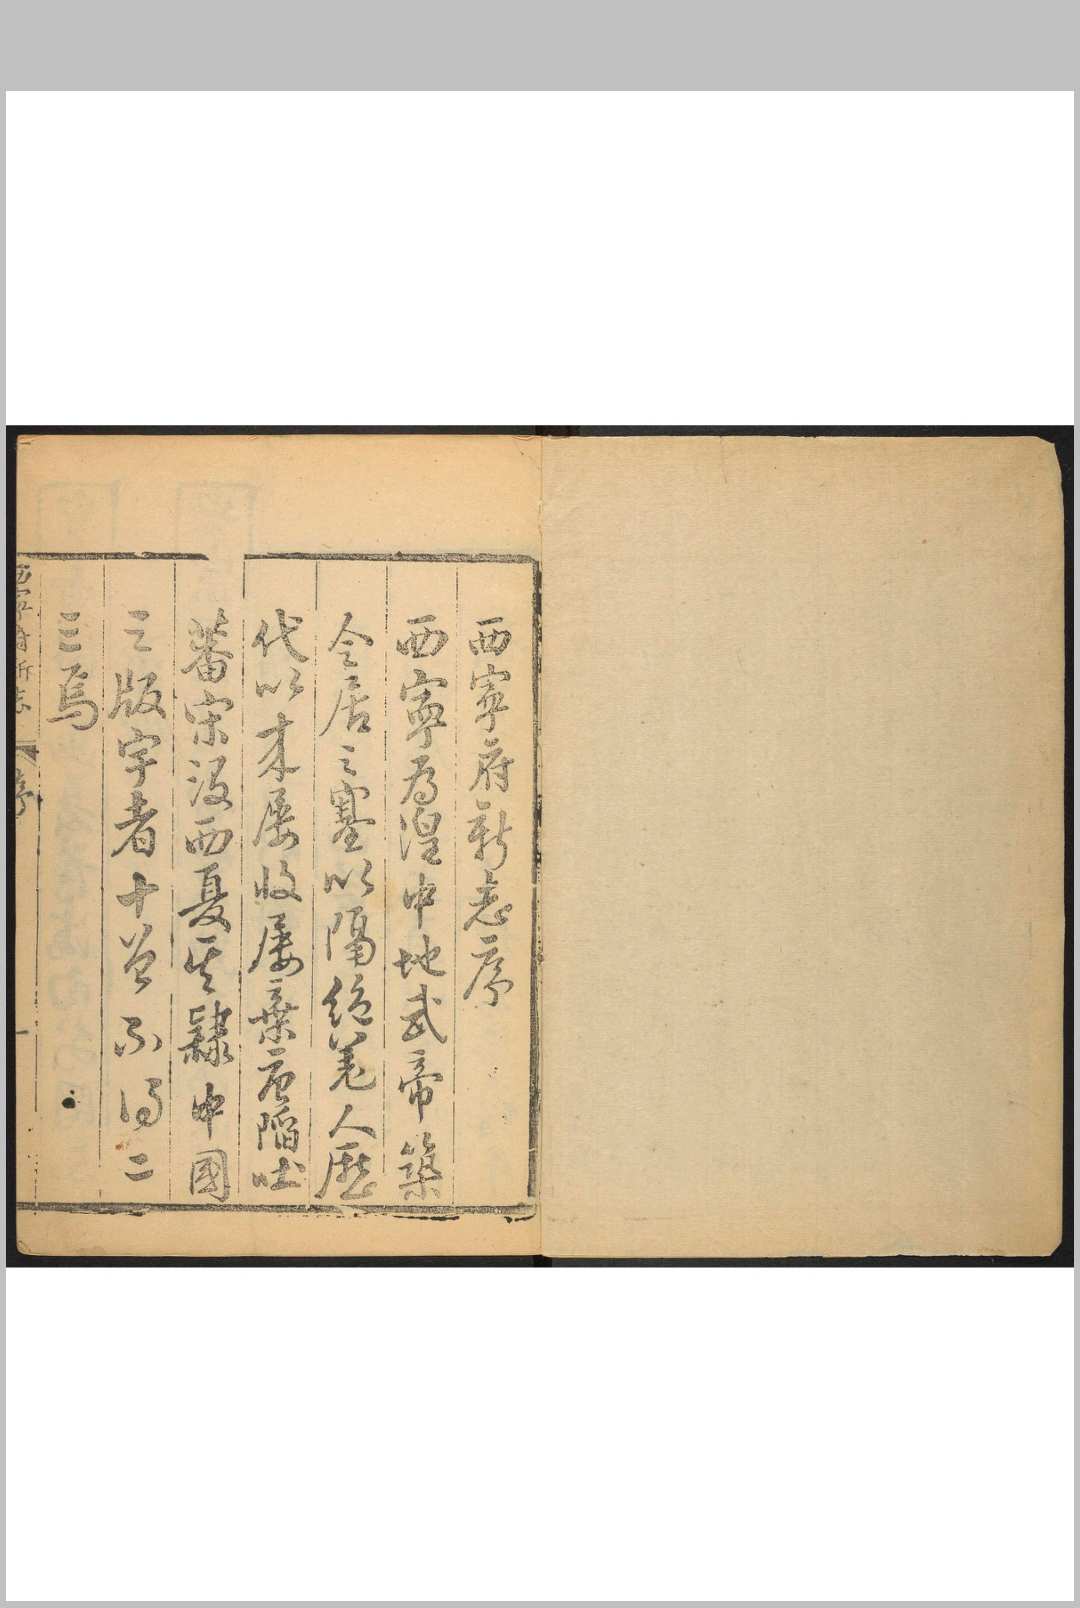 西寧府新志序
西寧為湟中地武帝築
令居之塞以隔絕羌人歷
代以來屡收屡棄唐陷吐
蕃宋没西夏其隸中國
之版宇者十曾不得二
三焉
西寧府新志 序 一